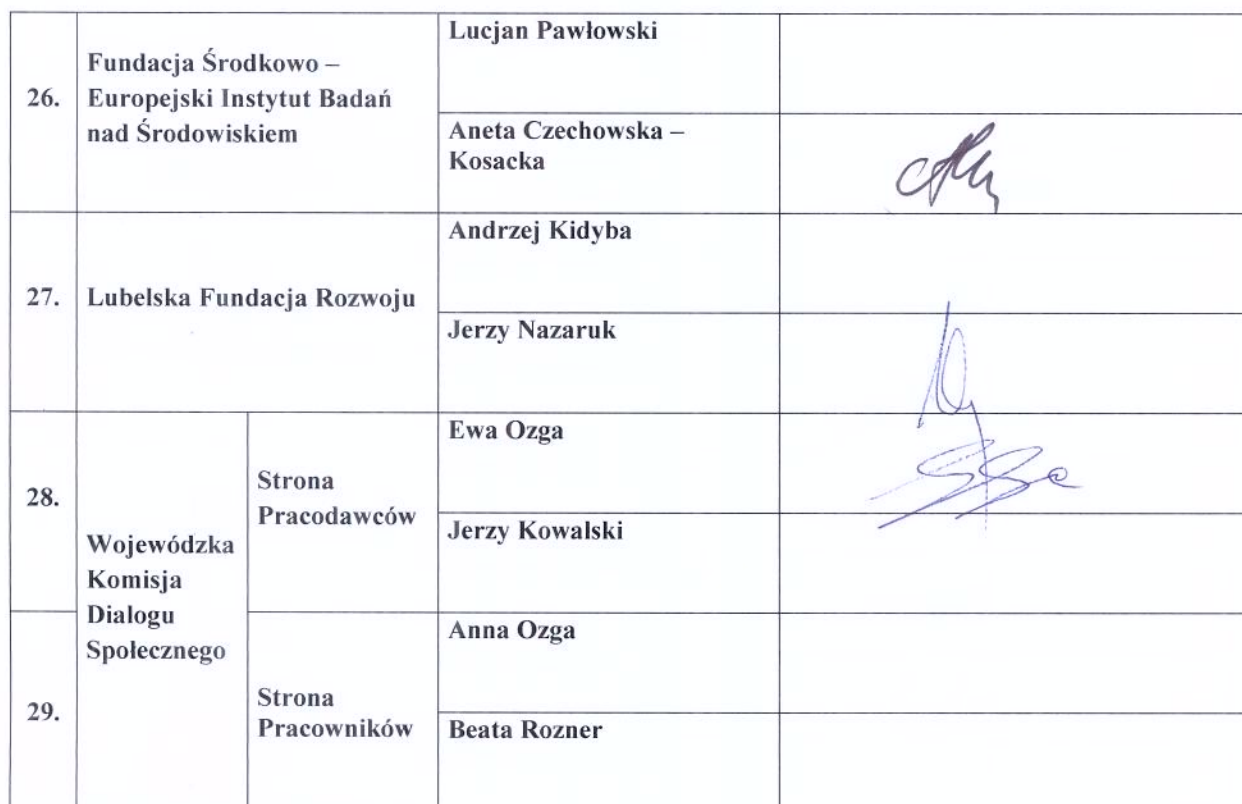 26.
Fundacja Środkowo –
Europejski Instytut Badań
nad Środowiskiem
Lucjan Pawłowski
Aneta Czechowska –
Kosacka
27.
Lubelska Fundacja Rozwoju
Andrzej Kidyba
Jerzy Nazaruk
Wojewódzka
Komisja
Dialogu
Społecznego
28.
Strona
Pracodawców
Ewa Ozga
Jerzy Kowalski
29.
Strona
Pracowników
Anna Ozga
Beata Rozner